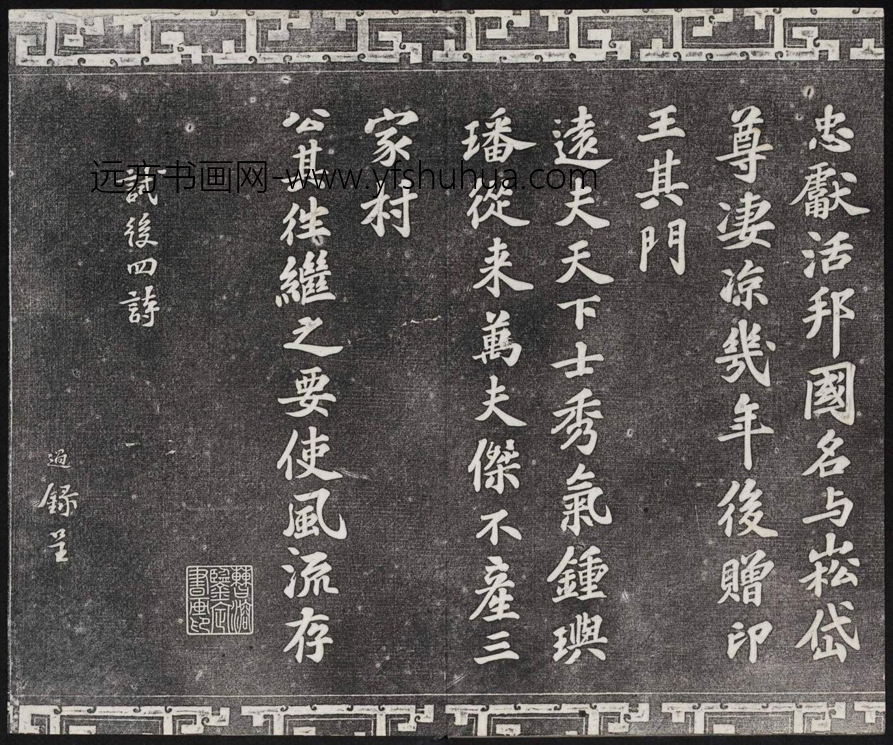 忠獻活邦國名与崧岱
尊淒凉幾年後贈印
王其門
遠夫天下士秀氣鍾璵
璠從来萬夫傑不産三
家村
公其徃繼之要使風流存
試後四詩
過錄呈
鑒定
書畫印
远方书画网-www.yfshuhua.com